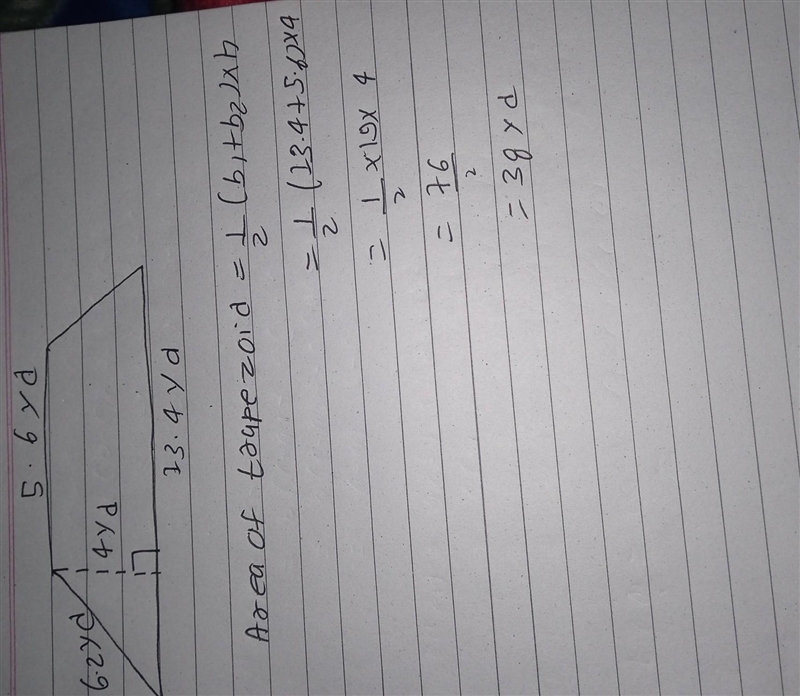 5.6 yd
6.2 yd
4 yd
13.4 yd
Area of trapezoid = 1/2 (b1+b2)xh
= 1/2 (13.4+5.6)x4
= 1/2 x19x 4
= 76/2
= 38 yd